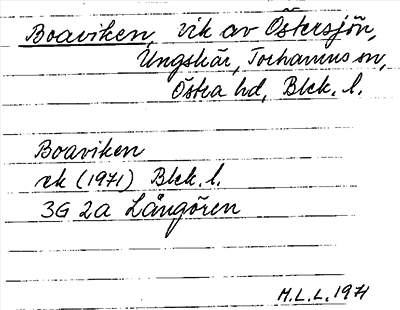 Boaviken, vik av Östersjön,
Ungskär, Torhamns sn,
Östra hd, Blek. l.
Boaviken
ek (1971) Blek. l.
3G 2a Långören
M.L.L. 1971